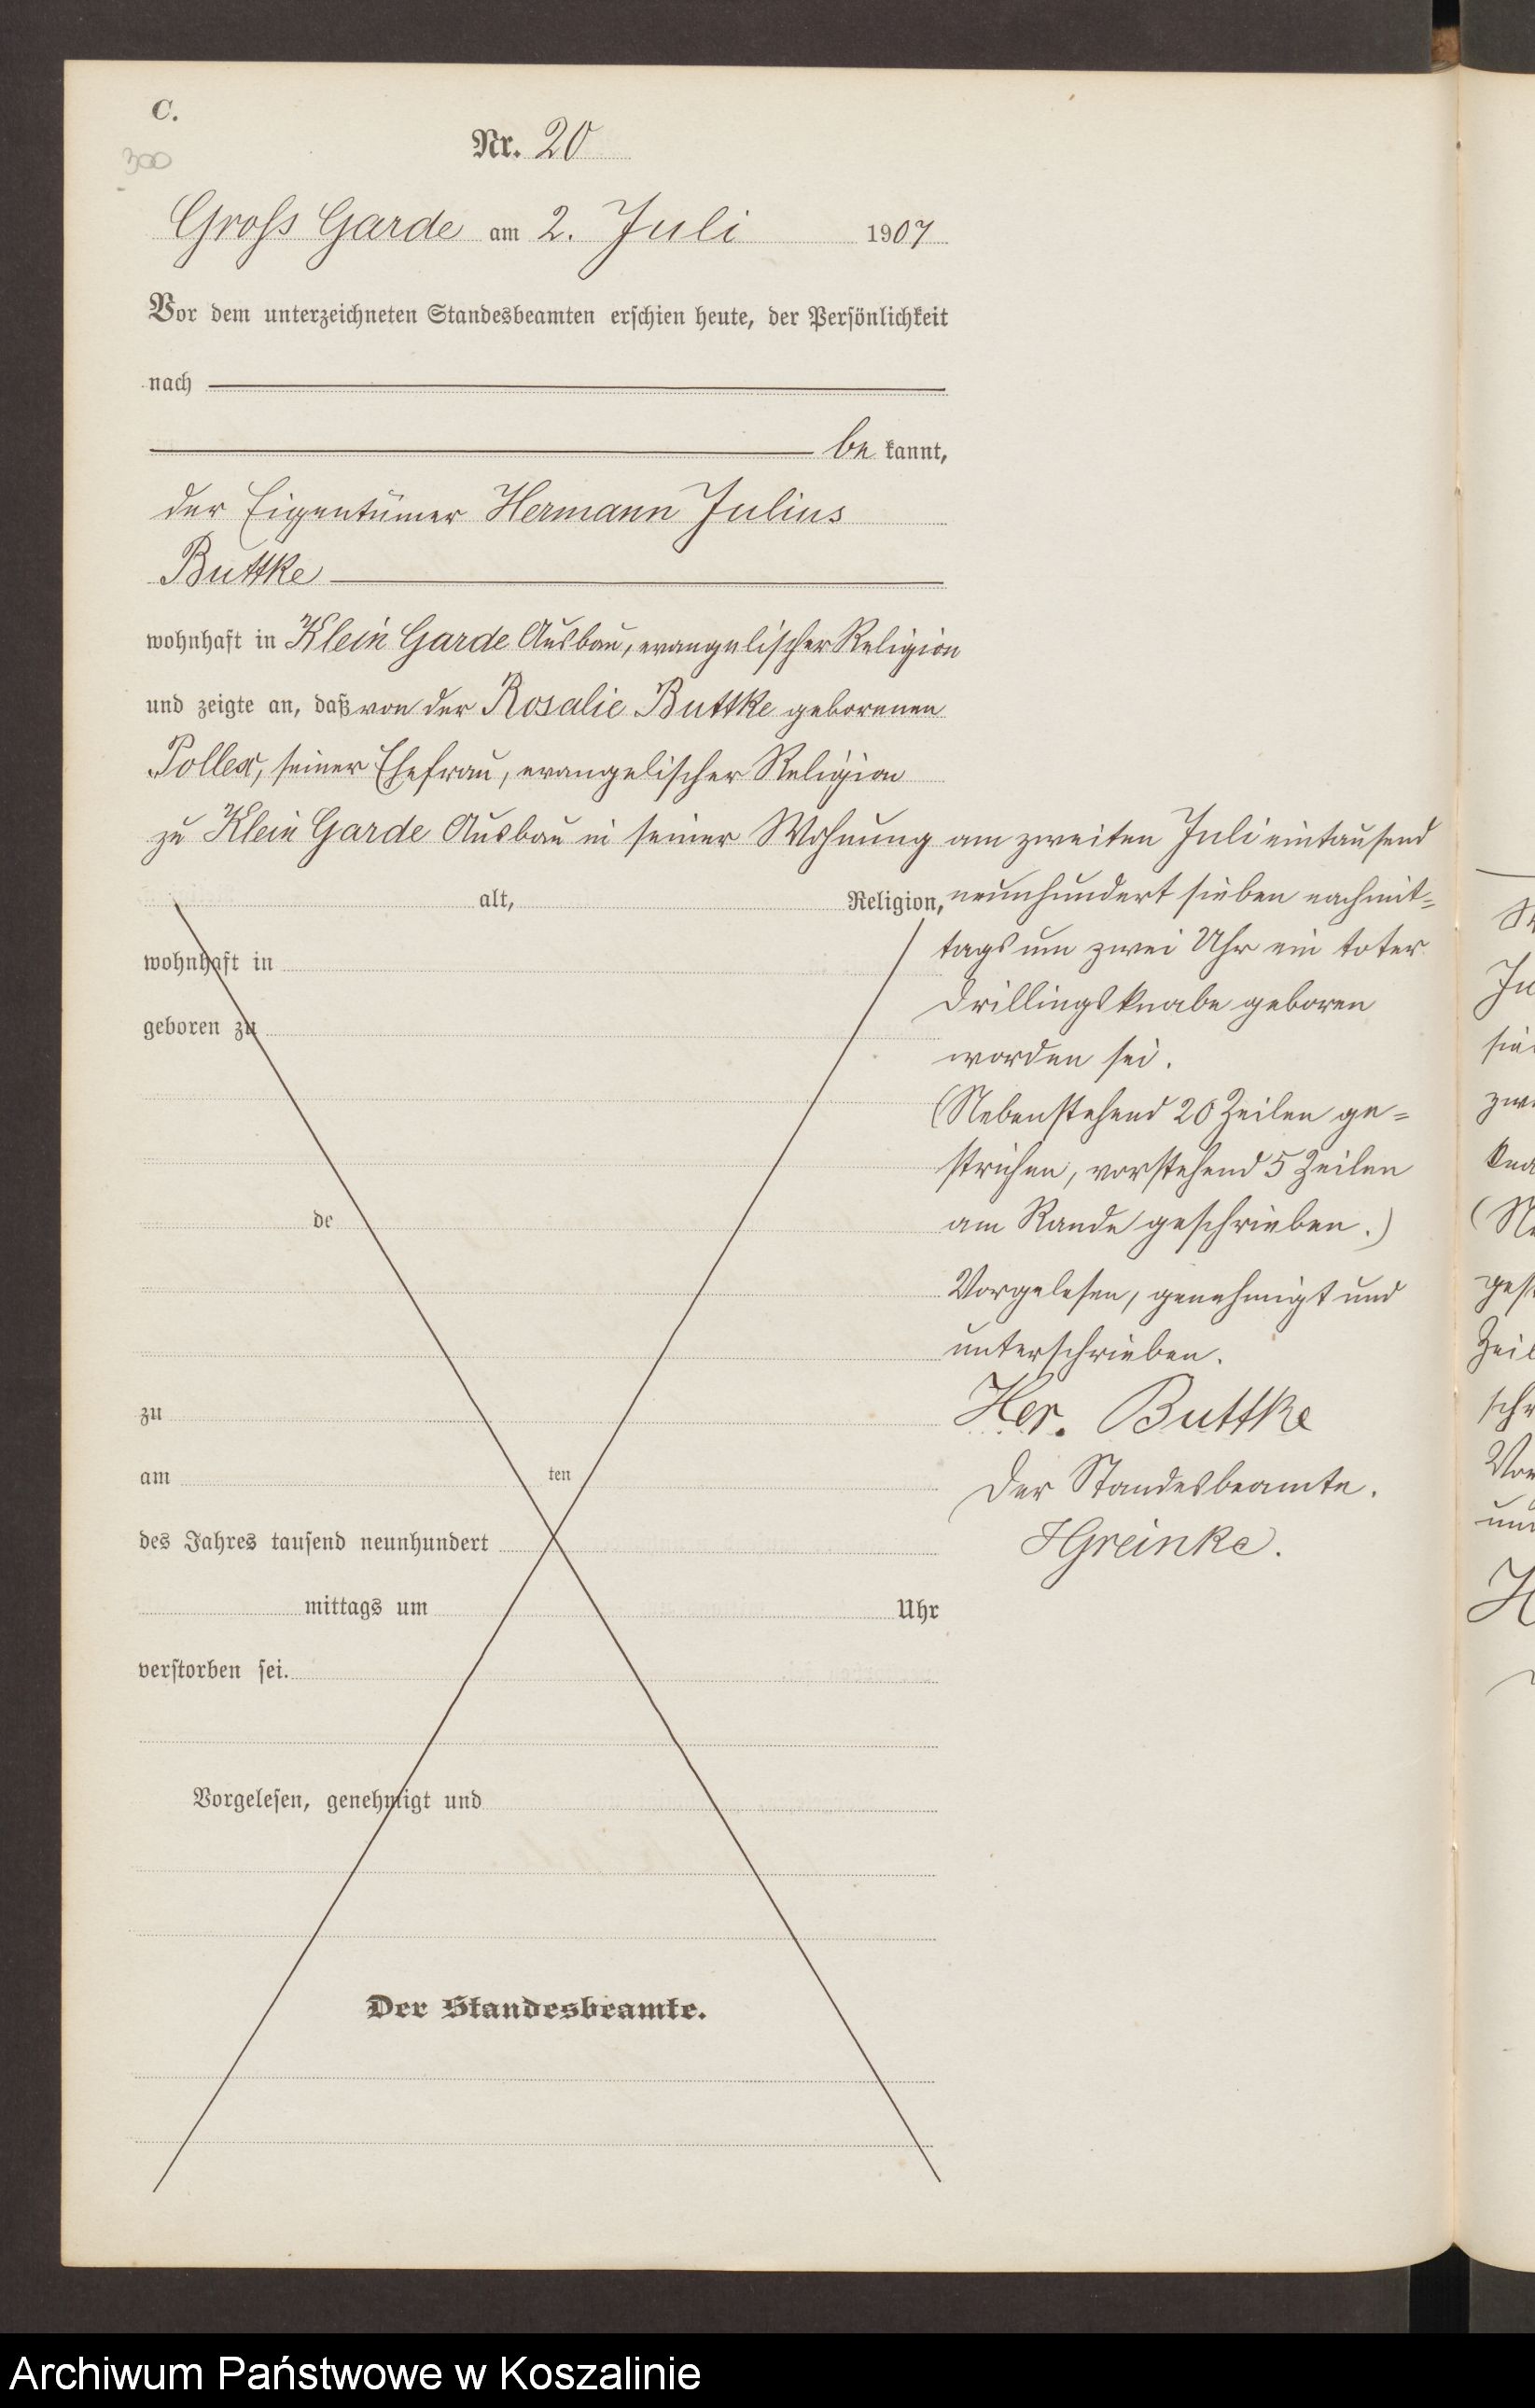 C.
300
Nr. 20
Gross Garde am 2. Juli 1907
Vor dem unterzeichneten Standesbeamten erschien heute, der Persönlichkeit
nach
be kannt,
der Eigentümer Hermann Julius
Buttke
wohnhaft in Klein Garde Ausbau, evangelischer Religion
und zeigte an, daß von der Rosalie Buttke geborenen
Pollex, seiner Ehefrau, evangelischer Religion
zu Klein Garde Ausbau in seiner Wohnung am zweiten Juli eintausend
alt, Religion, neunhundert sieben nachmit=
tags um zwei Uhr ein toter
Drillingsknabe geboren
worden sei.
(Nebenstehend 20 Zeilen ge=
strichen, vorstehend 5 Zeilen
am Rande geschrieben.)
Vorgelesen, genehmigt und
unterschrieben.
Her. Buttke
Der Standesbeamte.
HGreinke.
wohnhaft in
geboren zu
de
zu
am ten
des Jahres tausend neunhundert
mittags um Uhr
verstorben sei.
Vorgelesen, genehmigt und
Der Standesbeamte.
Archiwum Państwowe w Koszalinie